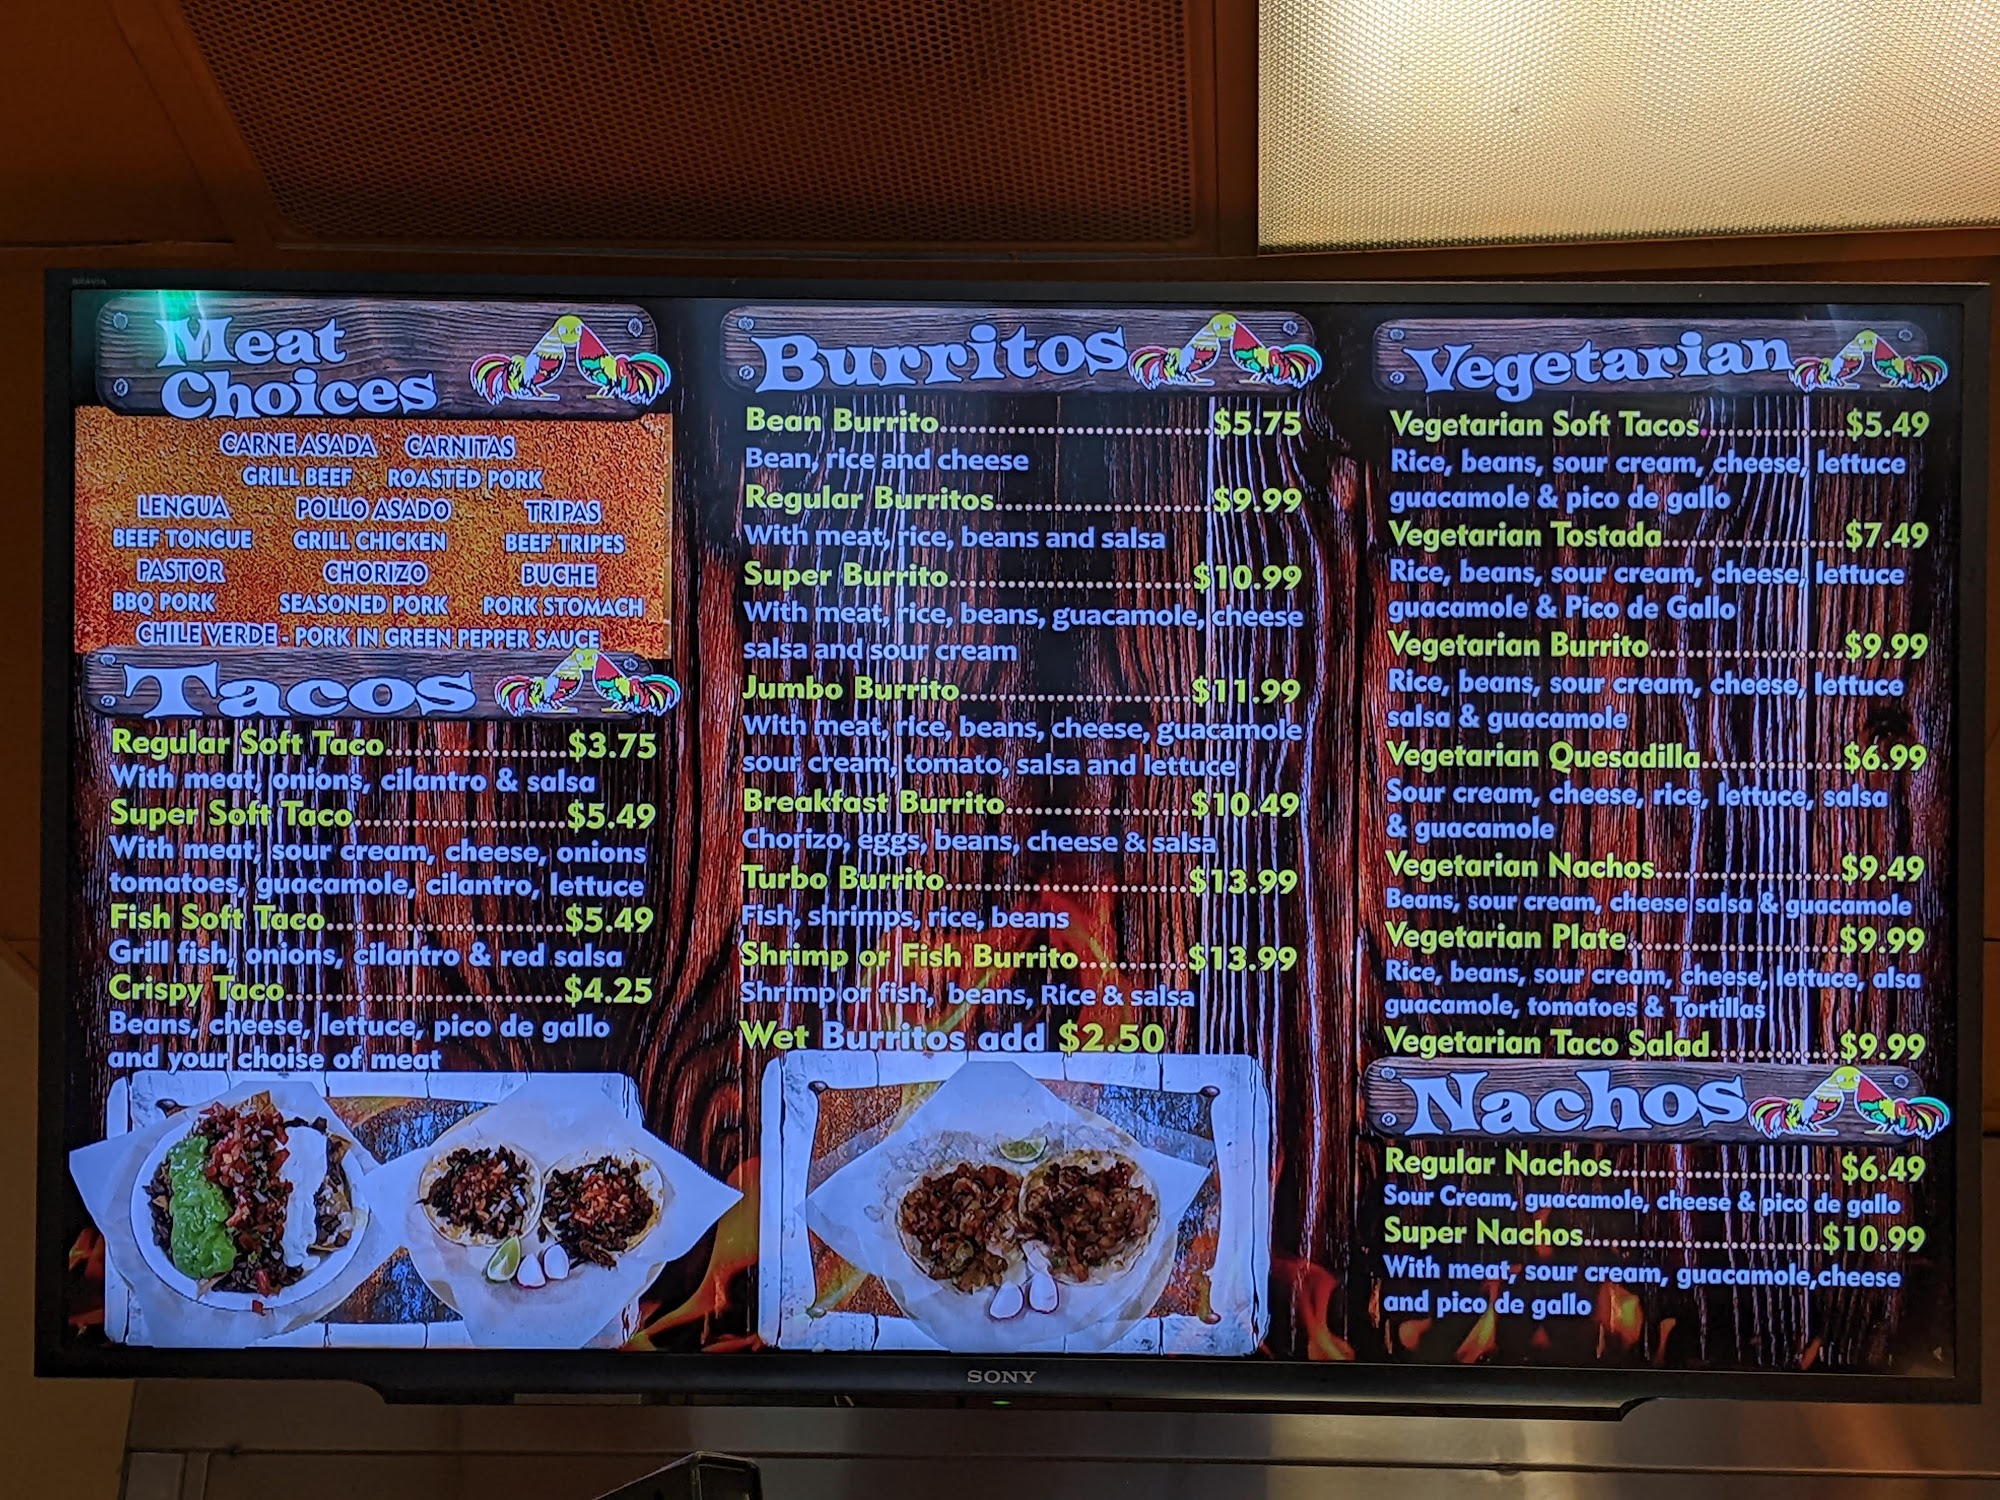 BRAVIA
Meat
Choices
CARNE ASADA CARNITAS
GRILL BEEF ROASTED PORK
LENGUA POLLO ASADO TRIPAS
BEEF TONGUE GRILL CHICKEN BEEF TRIPES
PASTOR CHORIZO BUCHE
BBQ PORK SEASONED PORK PORK STOMACH
CHILE VERDE - PORK IN GREEN PEPPER SAUCE
Tacos
Regular Soft Taco....................$3.75
With meat, onions, cilantro & salsa
Super Soft Taco.......................$5.49
With meat, sour cream, cheese, onions
tomatoes, guacamole, cilantro, lettuce
Fish Soft Taco..........................$5.49
Grill fish, onions, cilantro & red salsa
Crispy Taco..............................$4.25
Beans, cheese, lettuce, pico de gallo
and your choise of meat
Burritos
Bean Burrito..............................$5.75
Bean, rice and cheese
Regular Burritos........................$9.99
With meat, rice, beans and salsa
Super Burrito...........................$10.99
With meat, rice, beans, guacamole, cheese
salsa and sour cream
Jumbo Burrito.........................$11.99
With meat, rice, beans, cheese, guacamole
sour cream, tomato, salsa and lettuce
Breakfast Burrito....................$10.49
Chorizo, eggs, beans, cheese & salsa
Turbo Burrito..........................$13.99
Fish, shrimps, rice, beans
Shrimp or Fish Burrito...........$13.99
Shrimp or fish, beans, Rice & salsa
Wet Burritos add $2.50
Vegetarian
Vegetarian Soft Tacos...............$5.49
Rice, beans, sour cream, cheese, lettuce
guacamole & pico de gallo
Vegetarian Tostada...................$7.49
Rice, beans, sour cream, cheese, lettuce
guacamole & Pico de Gallo
Vegetarian Burrito.....................$9.99
Rice, beans, sour cream, cheese, lettuce
salsa & guacamole
Vegetarian Quesadilla...............$6.99
Sour cream, cheese, rice, lettuce, salsa
& guacamole
Vegetarian Nachos....................$9.49
Beans, sour cream, cheese salsa & guacamole
Vegetarian Plate.......................$9.99
Rice, beans, sour cream, cheese, lettuce, alsa
guacamole, tomatoes & Tortillas
Vegetarian Taco Salad..............$9.99
Nachos
Regular Nachos........................ $6.49
Sour Cream, guacamole, cheese & pico de gallo
Super Nachos..........................$10.99
With meat, sour cream, guacamole,cheese
and pico de gallo
SONY